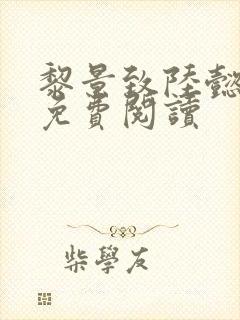 黎景致陸懿
免費閱讀
柴學友